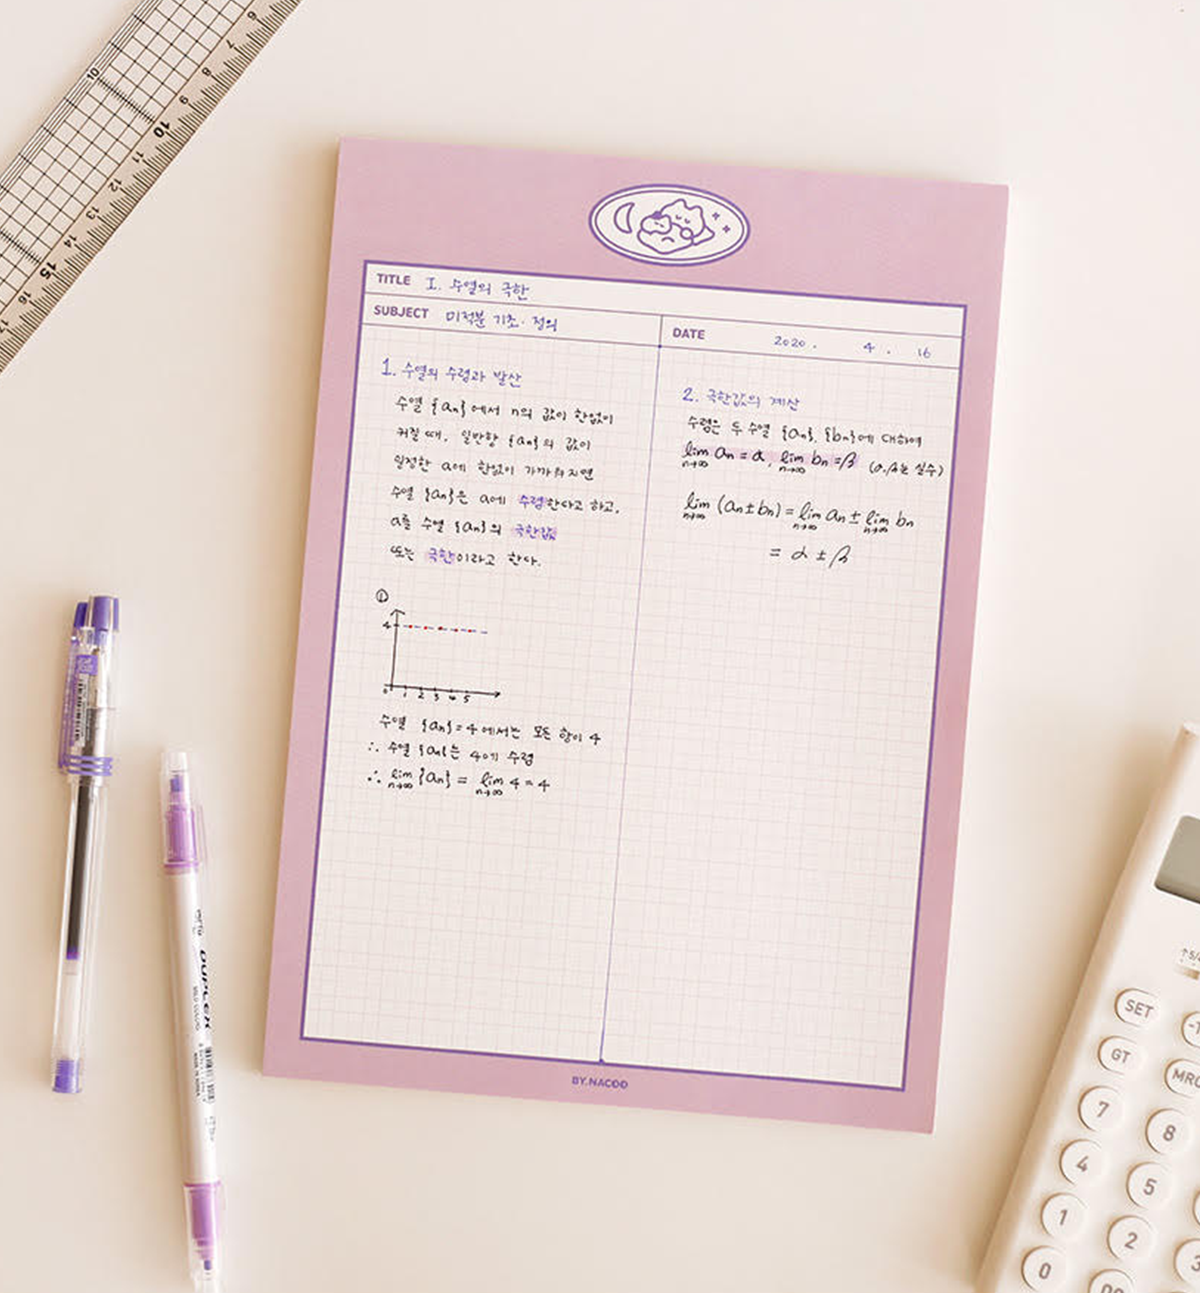 TITLE I. 수열의 극한
SUBJECT 미적분 기초·정의
DATE 2020. 4. 16
1. 수열의 수렴과 발산
수열 {an}에서 n의 값이 한없이
커질 때, 일반항 {an}의 값이
일정한 a에 한없이 가까워지면
수열 {an}은 a에 수렴한다고 하고,
a를 수열 {an}의 극한값
또는 극한이라고 한다.
①
4
0 1 2 3 4 5
수열 {an}=4에서는 모든 항이 4
∴ 수열 {an}는 4에 수렴
∴ lim n→∞ {an} = lim n→∞ 4 = 4
2. 극한값의 계산
수렴은 두 수열 {an}, {bn}에 대하여
lim n→∞ an = α, lim n→∞ bn = β (α,β는 실수)
lim n→∞ (an±bn) = lim n→∞ an ± lim n→∞ bn
= α ± β
BY.NACOO
6
7
8
9
10
11
12
13
14
15
16
10
DUPLEX
SET
GT
MRC
7 8
4 5
1 2 3
0 00